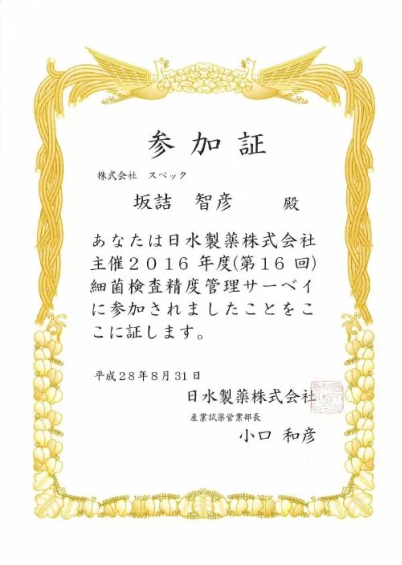 参加証
株式会社 スペック
坂詰 智彦 殿
あなたは日水製薬株式会社
主催2016年度(第16回)
細菌検査精度管理サーベイ
に参加されましたことをこ
こに証します。
平成28年8月31日
日水製薬株式会社
産業試薬営業部長
小口 和彦